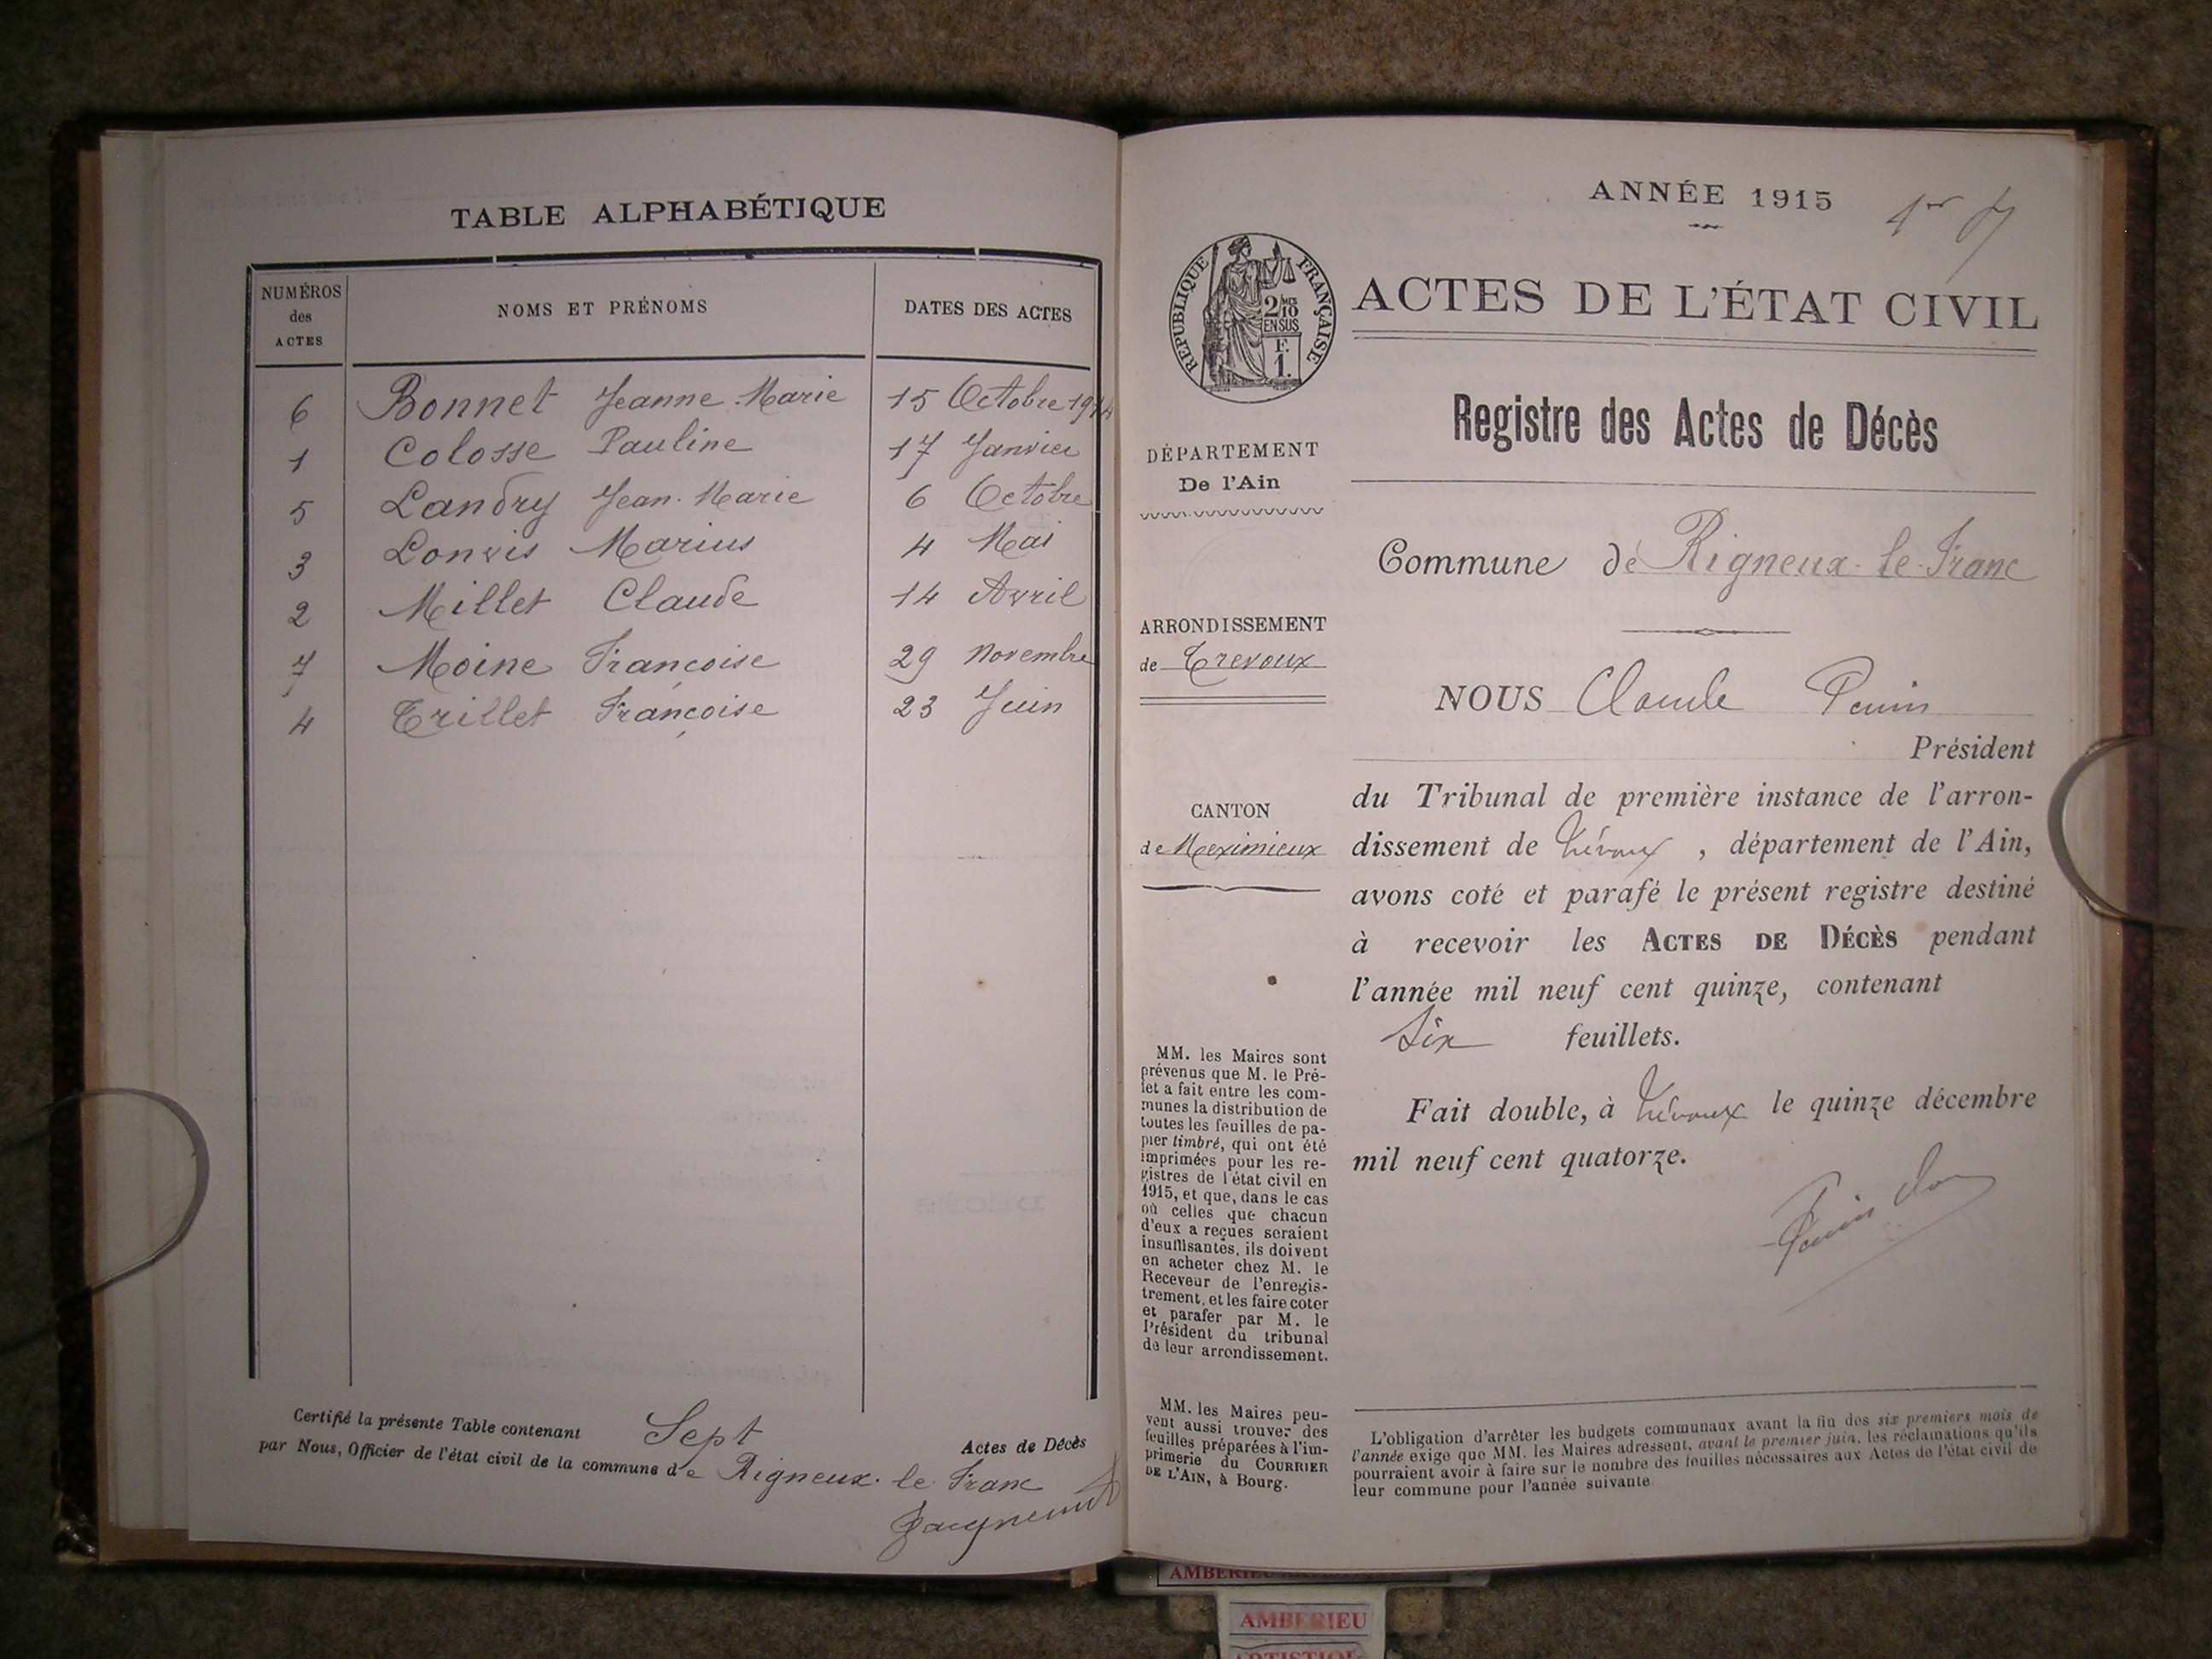 TABLE ALPHABÉTIQUE
NUMÉROS des ACTES
NOMS ET PRÉNOMS
DATES DES ACTES
6 Bonnet Jeanne Marie 15 Octobre 1914
1 Colosse Pauline 17 Janvier
5 Landry Jean-Marie 6 Octobre
3 Lonvis Marius 4 Mai
2 Millet Claude 14 Avril
7 Moine Françoise 29 Novembre
4 Trillet Françoise 23 Juin
Certifié la présente Table contenant Sept Actes de Décès
par Nous, Officier de l'état civil de la commune de Rigneux-le-Franc
ANNÉE 1915
1er
RÉPUBLIQUE FRANÇAISE
2/10 MES
EN SUS
F.
1.
ACTES DE L'ÉTAT CIVIL
Registre des Actes de Décès
DÉPARTEMENT
De l'Ain
Commune de Rigneux-le-Franc
ARRONDISSEMENT
de Trevoux
CANTON
de Meximieux
NOUS Claude
Président
du Tribunal de première instance de l'arron-
dissement de Trévoux, département de l'Ain,
avons coté et parafé le présent registre destiné
à recevoir les ACTES DE DÉCÈS pendant
l'année mil neuf cent quinze, contenant
Six feuillets.
Fait double, à Trévoux le quinze décembre
mil neuf cent quatorze.
MM. les Maires sont
prévenus que M. le Pré-
fet a fait entre les com-
munes la distribution de
toutes les feuilles de pa-
pier timbré, qui ont été
imprimées pour les re-
gistres de l'état civil en
1915, et que, dans le cas
où celles que chacun
d'eux a reçues seraient
insuffisantes, ils doivent
en acheter chez M. le
Receveur de l'enregis-
trement, et les faire coter
et parafer par M. le
Président du tribunal
de leur arrondissement.
MM. les Maires peu-
vent aussi trouver des
feuilles préparées à l'im-
primerie du COURRIER
DE L'AIN, à Bourg.
L'obligation d'arrêter les budgets communaux avant la fin des six premiers mois de
l'année exige que MM. les Maires adressent, avant le premier juin, les réclamations qu'ils
pourraient avoir à faire sur le nombre des feuilles nécessaires aux Actes de l'état civil de
leur commune pour l'année suivante.
AMBERIEU
AMBERIEU